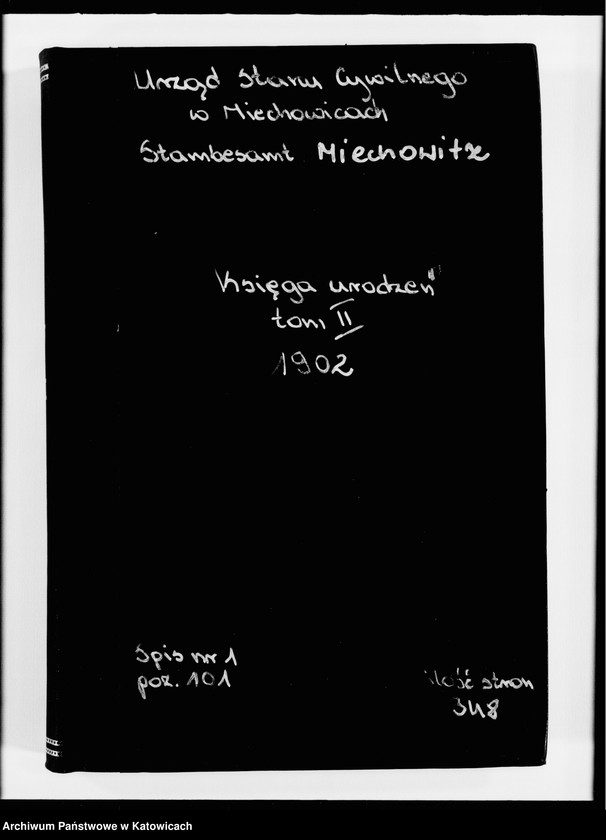 Urząd Stanu Cywilnego
w Miechowicach
Stambesamt Miechowitz
Księga urodzeń"
tom II
1902
Spis nr 1
poz. 101
ilość stron
348
Archiwum Państwowe w Katowicach